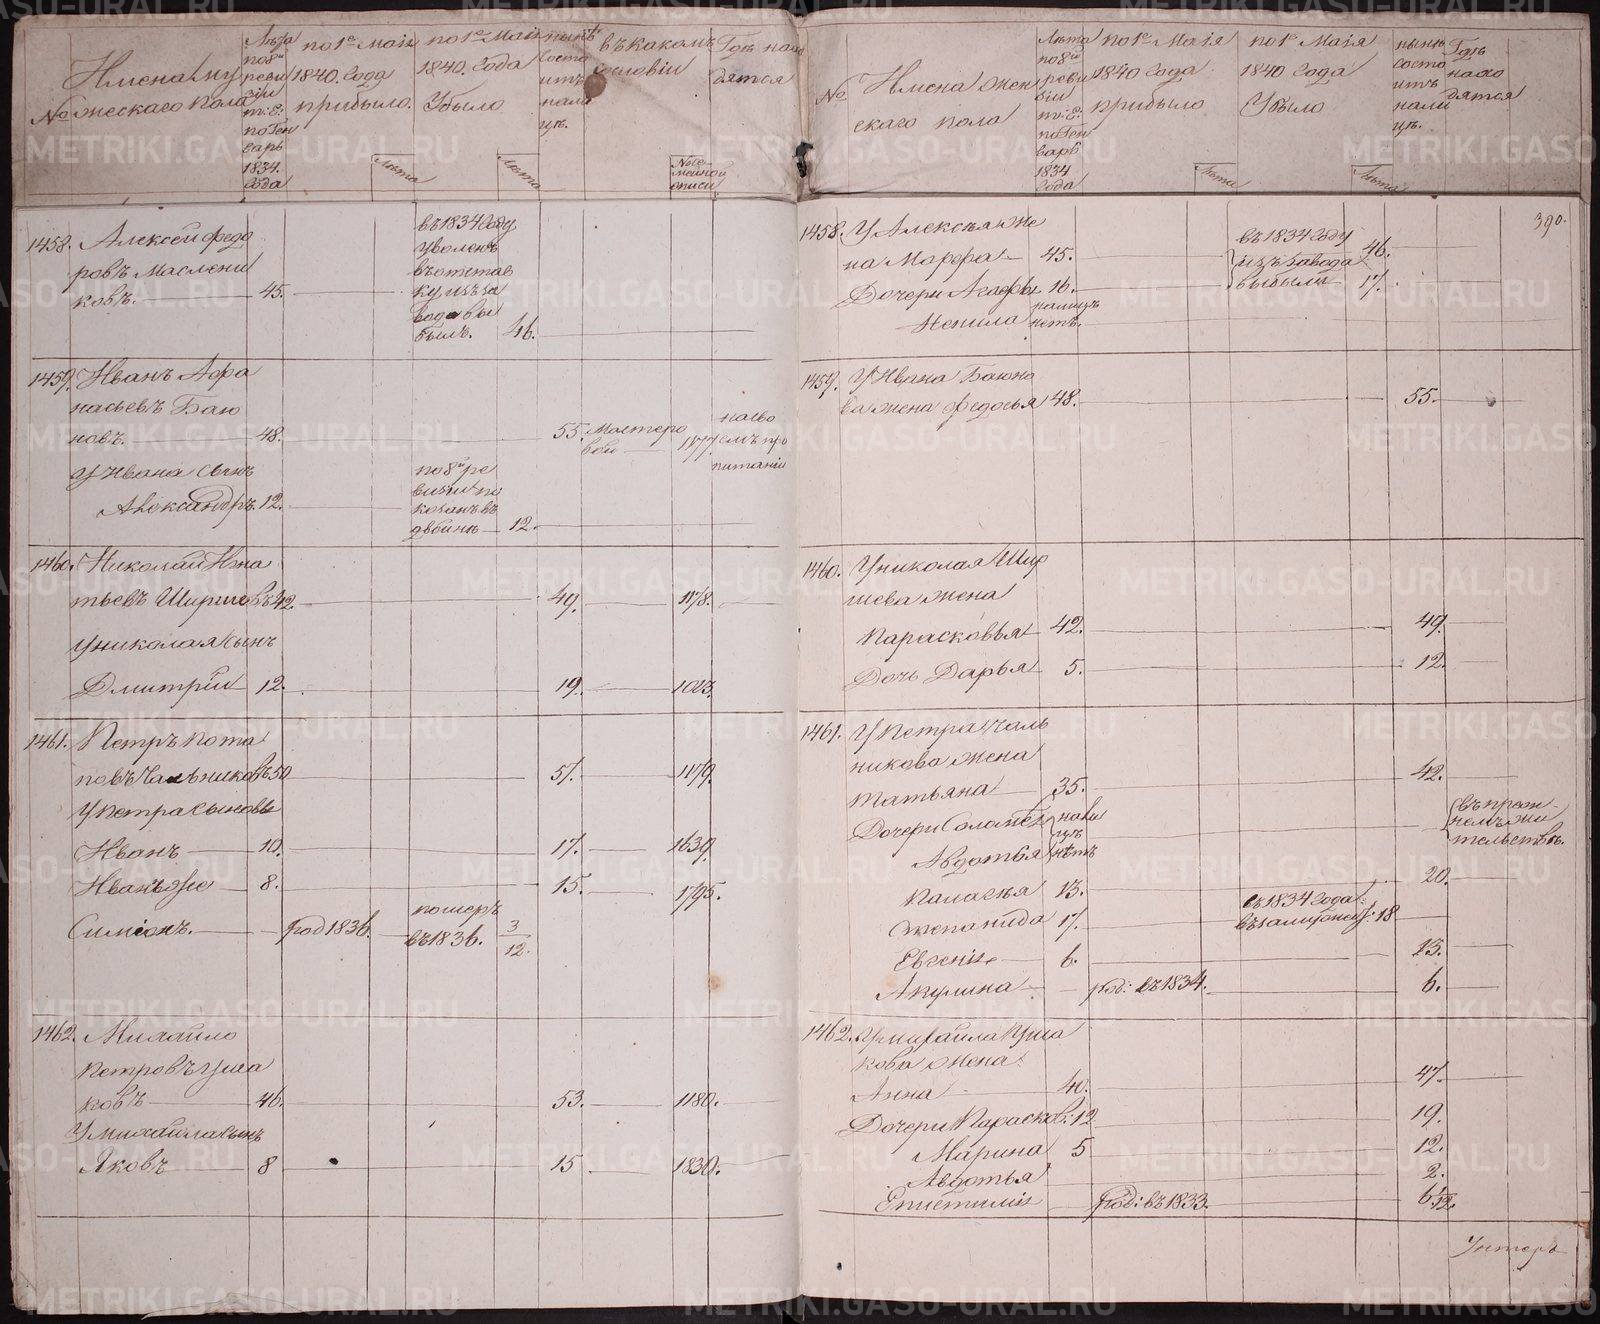 №
Имена му
жескаго пола
Лѣта
по 8й
реви
зіи
т: е:
по Ген
варь
1834.
года
по 1е Маія
1840. года
прибыло.
Лѣта
по 1е Маія
1840. года
Убыло
Лѣта
нынѣ
состо
итъ
нали
цѣ.
въ какомъ
сословіи
№ се-
мейной
описи
Гдѣ нахо
дятся
1458. Алексѣй Федо
ровъ Маслени
ковъ. 45.
въ 1834 году
уволенъ
въ отстав
ку изъ за
вода вы
былъ. 46.
1459. Иванъ Афа
насьевъ Баю
новъ. 48. 55. Мастеро
вой 1177.
на сво
емъ про
питаніи
У Ивана сынъ
Александръ. 12.
по 8й ре
визіи по
казанъ въ
двойнѣ 12.
1460. Николай Игна
тьевъ Ширшевъ 42. 49. 1178.
У Николая сынъ
Дмитрій 12. 19. 1023.
1461. Петръ Пота
повъ Чальниковъ 50 57. 1179.
У Петра сыновья
Иванъ 10. 17. 1639.
Иванъ же 8. 15. 1795.
Симіонъ. род 1836.
померъ
въ 1836. 3/12.
1462. Михайло
Петровъ Уша
ковъ 46. 53. 1180.
У Михайла сынъ
Яковъ 8 15 1830.
№
Имена жен
скаго пола
Лѣта
по 8й
реви
зіи
т: е:
по Ген
варь
1834
года
по 1е Маія
1840 года
прибыло
Лѣта
по 1е Маія
1840 года
Убыло
Лѣта
нынѣ
состо
итъ
нали
цѣ.
Гдѣ
нахо
дятся
390.
1458. У Алексѣя же
на Марфа 45.
Дочери Агафья 16.
Ненила налицѣ
нетъ.
въ 1834 году
изъ завода
выбыли
46.
17.
1459. У Ивана Баюно
ва жена Федосья 48. 55.
1460. У Николая Шир
шева жена
Парасковья 42. 49.
Дочь Дарья 5. 12.
1461. У Петра Чаль
никова жена
Татьяна 35. 42.
Дочери Соломея
Авдотья
нали
цѣ
нѣтъ
въ преж-
немъ жи
тельствѣ.
Палагѣя 13. 20.
Степанида 17.
въ 1834 года
въ замужест: 18
Евгенія 6. 13.
Акулина род: въ 1834. 6.
1462. У Михайла Уша
кова жена
Анна 40. 47.
Дочери Парасков: 12 19.
Марина 5 12.
Авдотья 2.
Епистимія род: въ 1833. 6/12.
Унтеръ